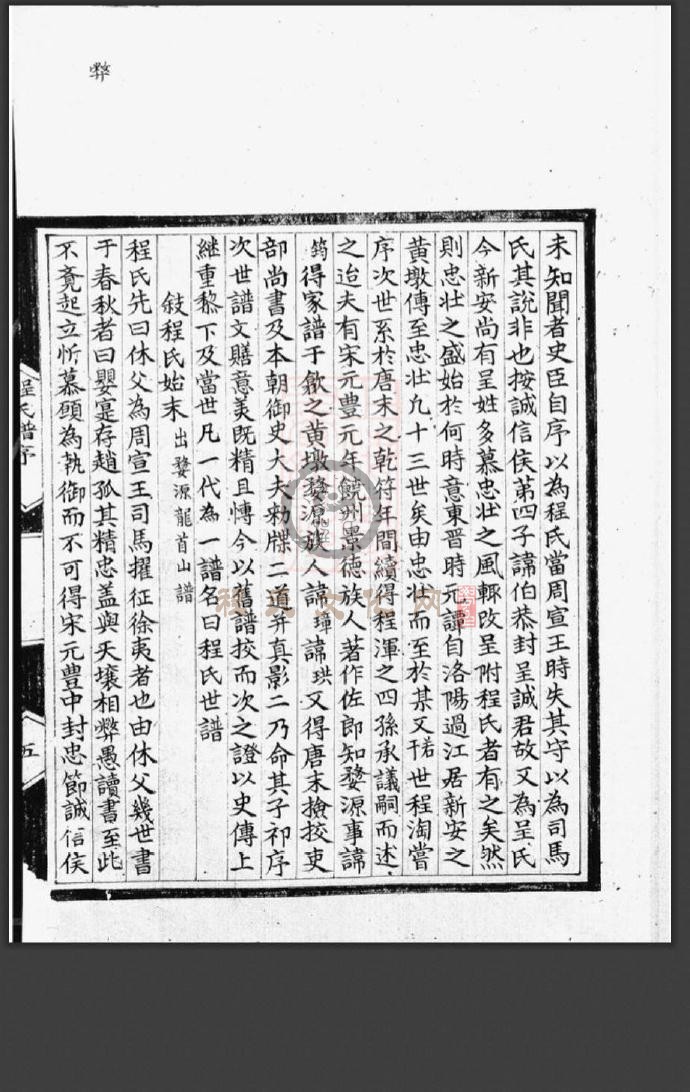 弊
未知聞者史臣自序以為程氏當周宣王時失其守以為司馬
氏其說非也按誠信侯第四子諱伯恭封呈誠君故又為呈氏
今新安尚有呈姓多慕忠壯之風輙改呈附程氏者有之矣然
則忠壯之盛始於何時意東晋時元譚自洛陽過江居新安之
黄墩傳至忠壯九十三世矣由忠壯而至於某又若干世程淘嘗
序次世系於唐末之乾符年間續得程渾之四孫承議嗣而述
之迨夫有宋元豊元年饒州景德族人著作佐郎知婺源事諱
筠得家譜于歙之黄墩婺源族人諱瑋諱珙又得唐末撿挍吏
部尚書及本朝御史大夫勅牒二道并真影二乃命其子祁序
次世譜文贍意美既精且慱今以舊譜挍而次之證以史傳上
継重黎下及當世凡一代為一譜名曰程氏世譜
敍程氏始末 出婺源龍首山譜
程氏先曰休父為周宣王司馬擢征徐夷者也由休父幾世書
于春秋者曰嬰寔存趙孤其精忠盖與天壤相弊愚讀書至此
不竟起立忻慕願為執御而不可得宋元豊中封忠節誠信侯
程氏譜序
五